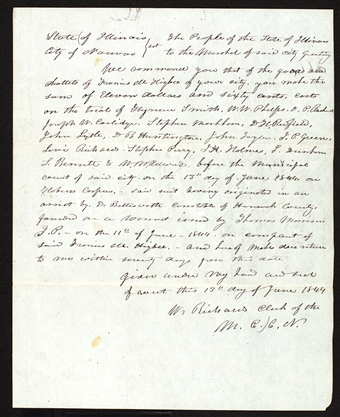 State of Illinois, } The People of the State of Illinois
City of Nauvoo } sct to the Marshal of said city Greeting
We commmand you that of the goods and
chattels of Francis M Higbee of your city, you make the
sum of Eleven dollars and sixty cents, costs
on the trial of Hyrum Smith, W. W. Phelps. O. P.
Joseph W. Coolidge. Stephen Markham, D. H. Redfield,
John Lytle, D. B. Huntington, John Taylor. J. P. Green,
Levi Richards. Stephen Perry, J. H. Holmes, J. Dunbar
L. Bennett & W. W. before the Municipal
court of said city on the 13th day of June 1844. on
Habeas Corpus, - said suit having originated in an
arrest by D. Bettisworth Constable of Hancock County,
founded on a warrant issued by Thomas Morrison
J. P. - on the 11th of June - 1844 - on complaint of
said Francis M. Higbee, - and hereof make due return
to me within seventy days from this date
Given under my hand and seal
of court this 17th day of June 1844
W. Richards Clerk of the
M. C. C. N.